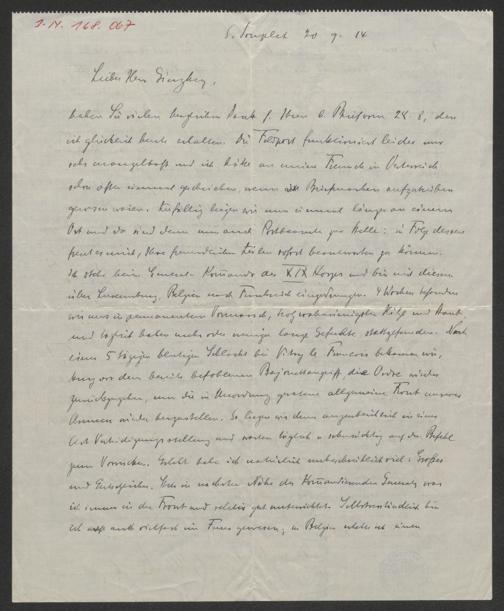 I.N. 168.067
S. Souplet 20 9. 14
Lieber Herr Ginzkey,
haben Sie vielen herzlichen Dank f. Ihren l. Brief vom 28. 8, den
ich glücklich heute erhalten. Die Feldpost funktioniert leider nur
sehr mangelhaft und ich hätte an meine Freunde in Österreich
schon öfter einmal geschrieben, wenn Briefmarken aufzutreiben
gewesen wären. Zufällig liegen wir nun einmal länger an einem
Ort und da sind denn nun auch Postbeamte zur Stelle: in Folge dessen
freut es mich, Ihre freundlichen Zeilen sofort beantworten zu können.
Ich stehe beim General-Kommando des XIX Korps und bin mit diesem
über Luxemburg, Belgien nach Frankreich eingedrungen. 4 Wochen befanden
wir uns in permanentem Vormarsch, trotz wahnsinnigster Hitze und Staub,
und täglich haben mehr oder weniger lange Gefechte stattgefunden. Nach
einer 5 tägigen blutigen Schlacht bei Vitry le Francois bekamen wir,
kurz vor dem bereits befohlenen Bajonettangriff die Ordre wieder
zurückzugehen, um die in Unordnung geratene allgemeine Front unserer
Armeen wieder herzustellen. So liegen wir denn augenblicklich in einer
Art Verteidigungsstellung und warten täglich sehnsüchtig auf den Befehl
zum Vorrücken. Erlebt habe ich natürlich unbeschreiblich viel: Großes
und Entsetzliches. Stets in nächster Nähe des Kommandierenden Generals war
ich immer in der Front und gut unterrichtet. Selbstverständlich bin
ich auch vielfach im Feuer gewesen, in Belgien einen